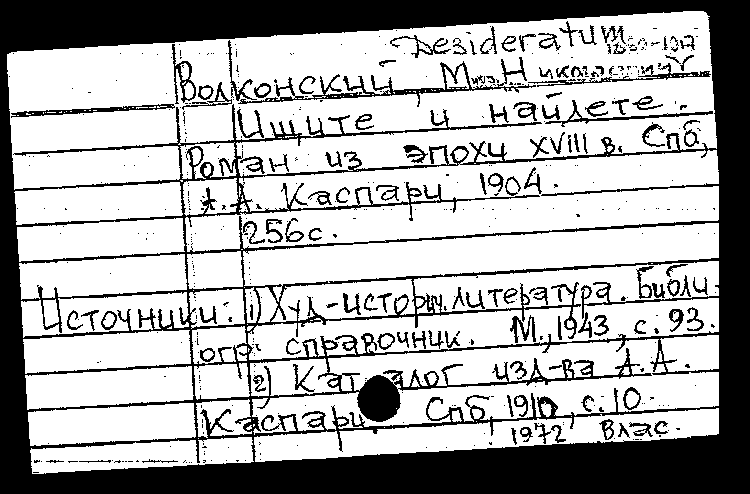 Desideratum
1860-1917
Волконский, Мих. Николаевич
Ищите и найдете.
Роман из эпохи XVIII в. Спб,
А. А. Каспари, 1904.
256с.
Источники: 1) Худ-историч. литература. Библи-
огр. справочник. М., 1943, с. 93.
2) Каталог изд-ва А. А.
Каспари. Спб, 1910, с. 10.
1972 Влас.